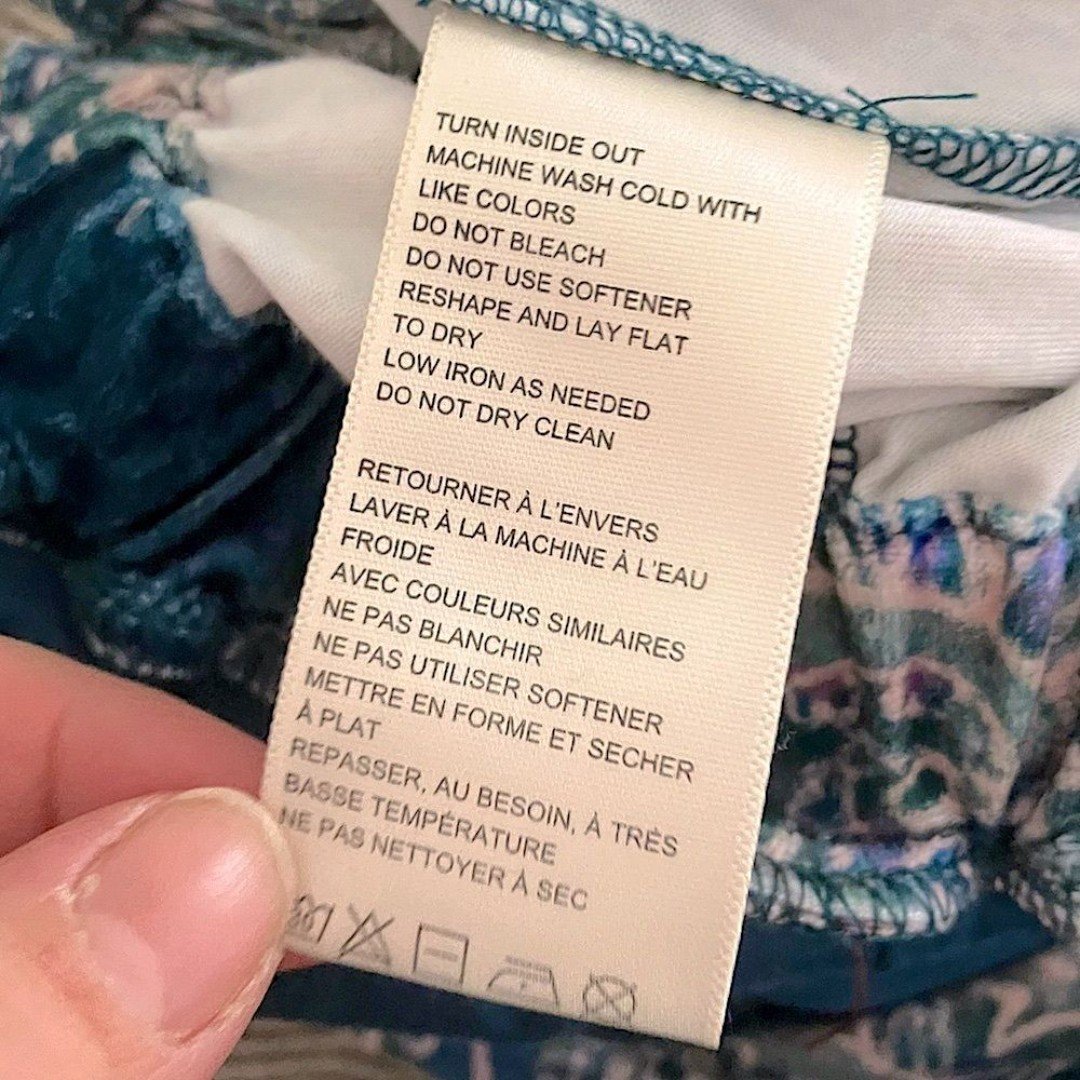 TURN INSIDE OUT
MACHINE WASH COLD WITH
LIKE COLORS
DO NOT BLEACH
DO NOT USE SOFTENER
RESHAPE AND LAY FLAT
TO DRY
LOW IRON AS NEEDED
DO NOT DRY CLEAN
RETOURNER À L'ENVERS
LAVER À LA MACHINE À L'EAU
FROIDE
AVEC COULEURS SIMILAIRES
NE PAS BLANCHIR
NE PAS UTILISER SOFTENER
METTRE EN FORME ET SECHER
À PLAT
REPASSER, AU BESOIN, À TRÈS
BASSE TEMPÉRATURE
NE PAS NETTOYER À SEC